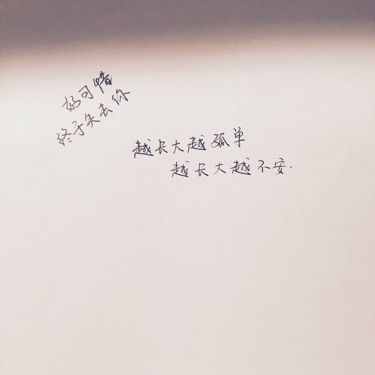 好可惜
终于失去你
越长大越孤单
越长大越不安.